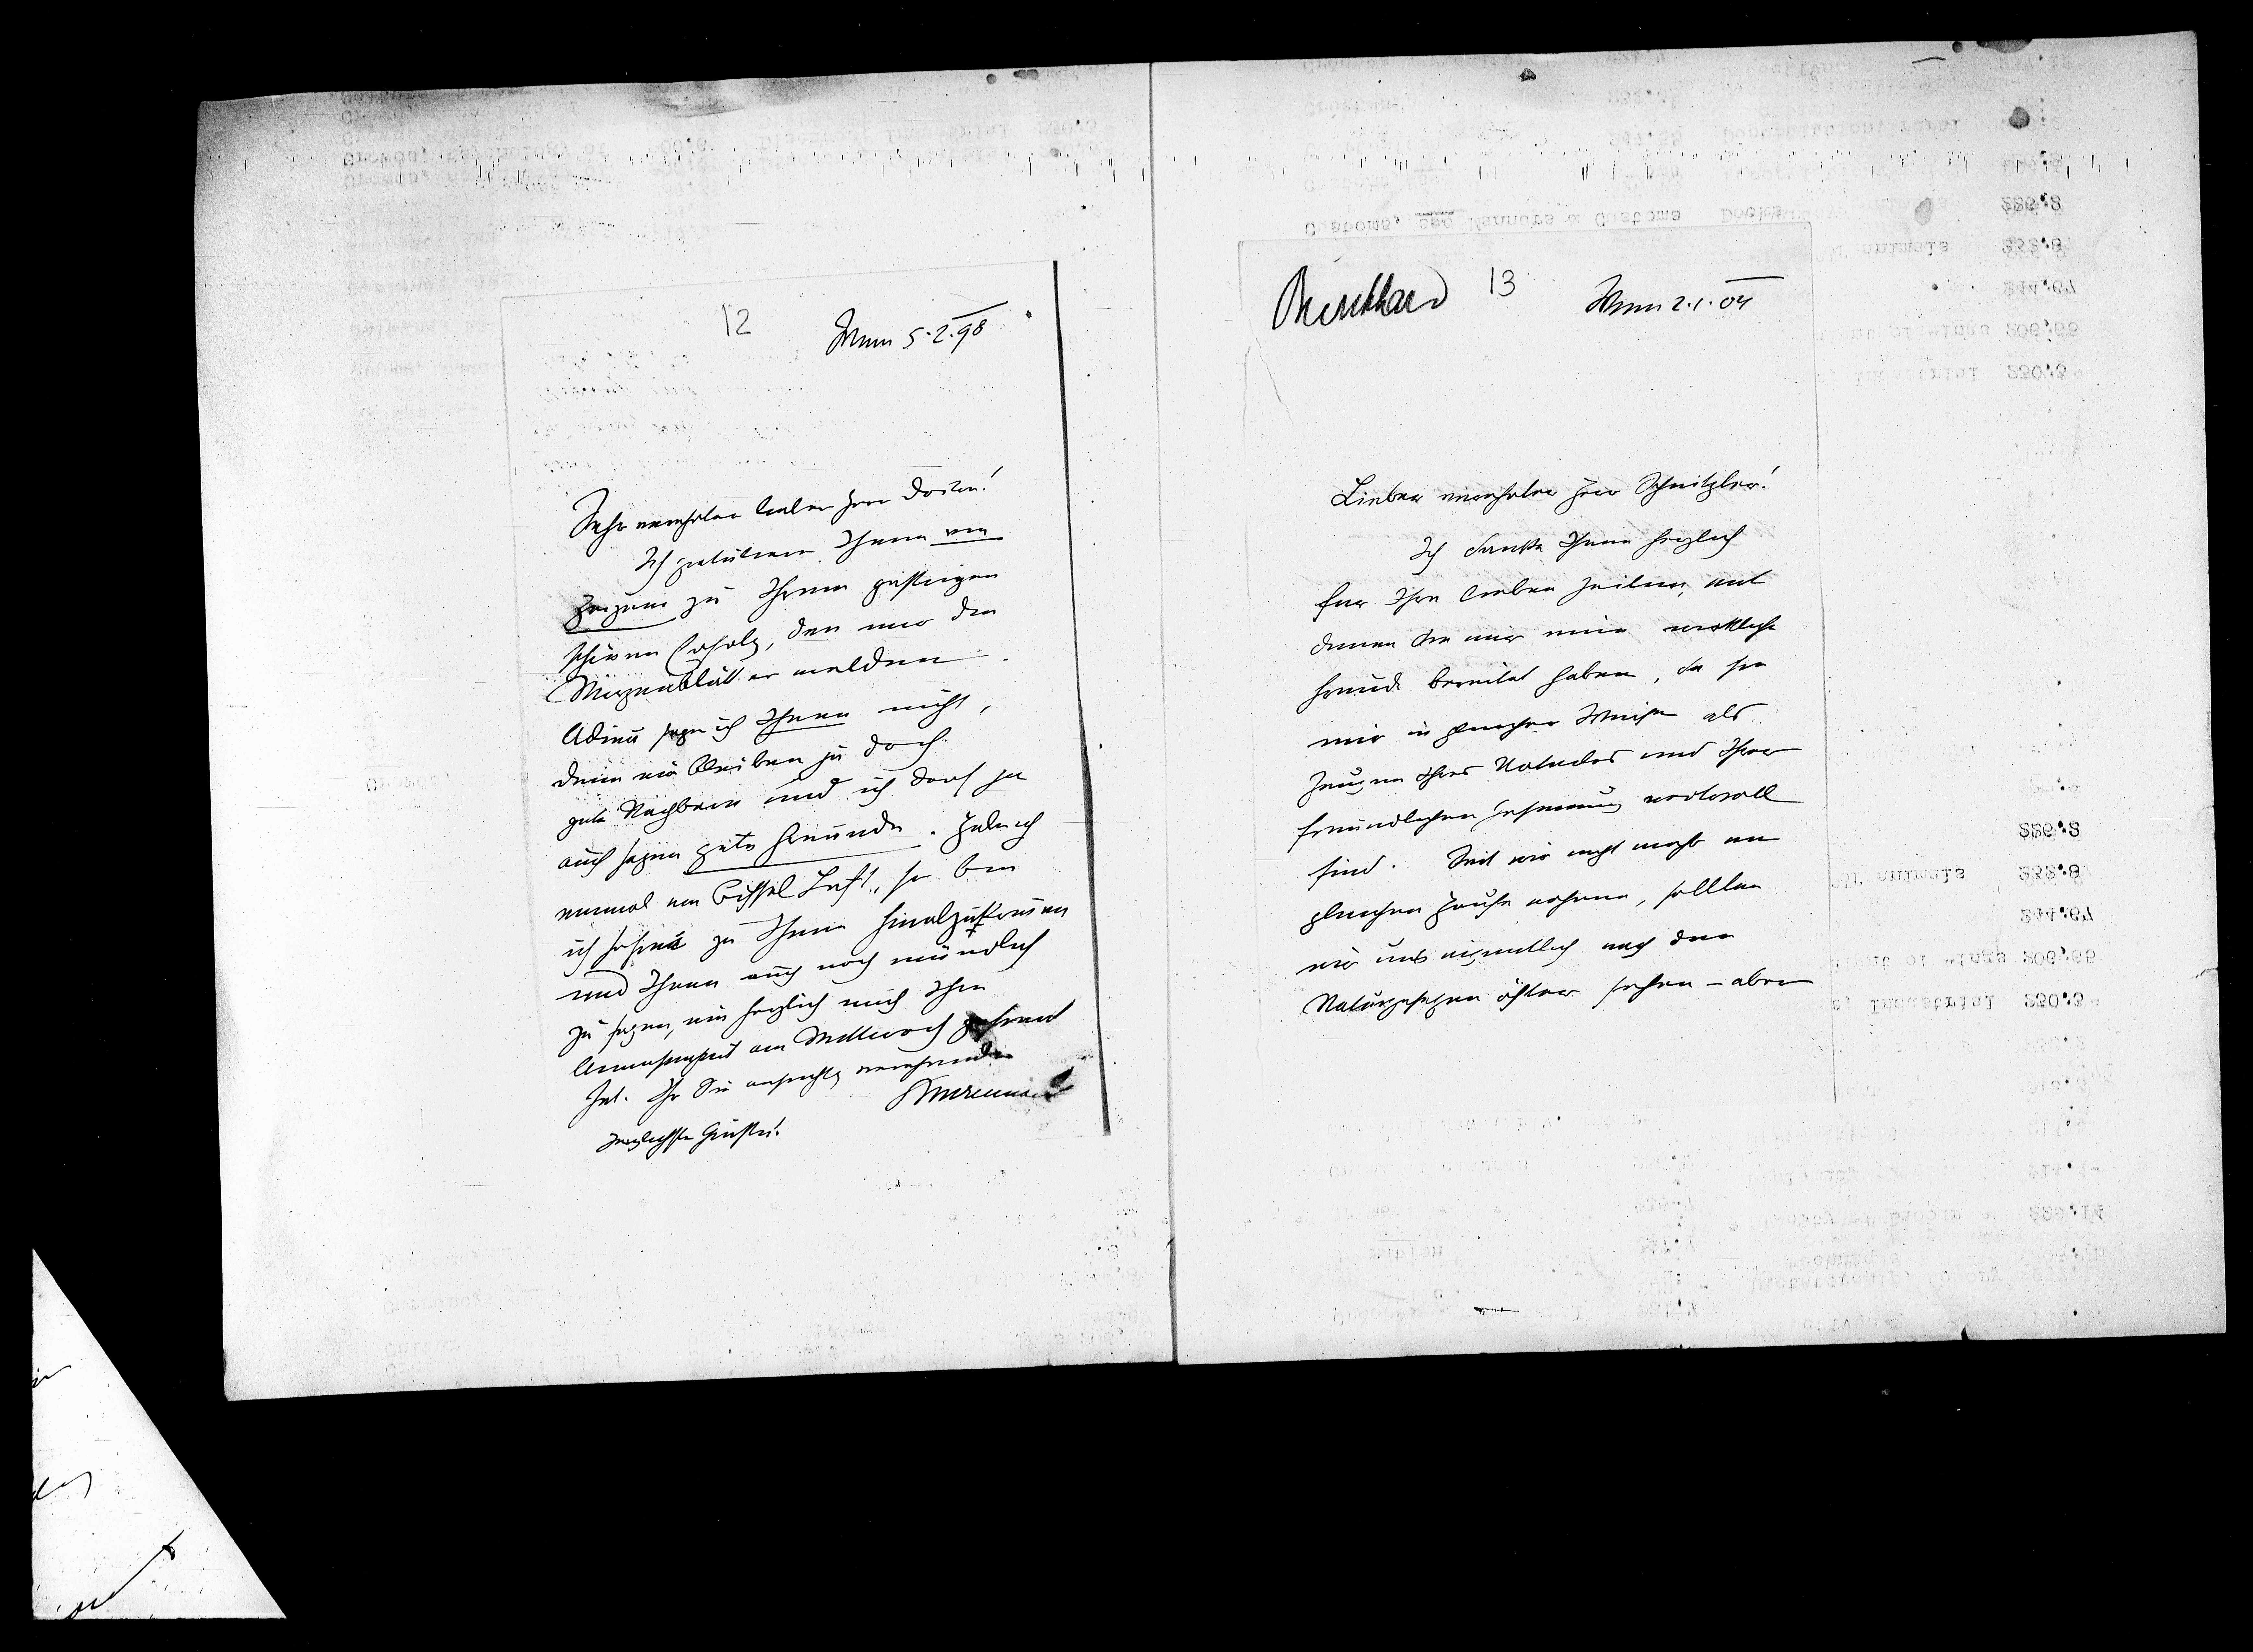 12
Wien 5.2.98
Sehr verehrter lieber Herr Doktor!
Ich gratuliere Ihnen von
Herzen zu Ihrem gestrigen
schönen Erfolg, den mir die
Morgenblätter melden.
Adieu sage ich Ihnen nicht,
denn wir bleiben ja doch
gute Nachbarn und ich darf ja
auch sagen gute Freunde. Habe ich
einmal ein Bissel Luft, so bin
ich so frei zu Ihnen hinaufzukommen
und Ihnen auch noch mündlich
zu sagen, wie herzlich mich Ihre
Anwesenheit am Mittwoch gefreut
hat. Ihr Sie aufrichtig verehrender
Herzlichste Grüße!
13
Wien 2.1.04
Lieber verehrter Herr Schnitzler!
Ich danke Ihnen herzlich
für Ihre lieben Zeilen, mit
denen Sie mir eine wirkliche
Freude bereitet haben, da sie
mir in gleicher Weise als
Zeugen Ihres Urteiles und Ihrer
freundlichen Gesinnung wertvoll
sind. Seit wir nicht mehr im
gleichen Hause wohnen, sollten
wir uns eigentlich nach den
Naturgesetzen öfter sehen – aber